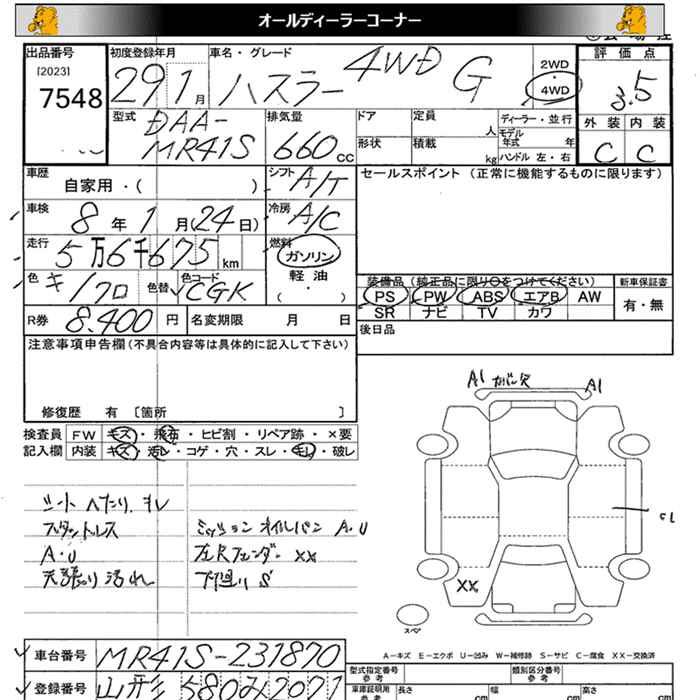 オールディーラーコーナー
出品番号 [2023] 7548
初度登録年月 29 1月
車名・グレード ハスラー 4WD G
2WD 4WD
評価点 3.5
外装 C 内装 C
型式 DAA-MR41S
排気量 660 CC
ドア 定員 人
形状 積載 kg
ディーラー・並行
モデル年式 年
ハンドル 左・右
車歴 自家用・( )
シフト A/T
セールスポイント (正常に機能するものに限ります)
車検 8年1月(24日)
冷房 A/C
走行 5万6千675 km
燃料 ガソリン 軽油 ( ・ )
色 キ/クロ 色替 色コード CGK
装備品 (純正品に限り○をつけてください) 新車保証書
PS PW ABS エアB AW 有・無
SR ナビ TV カワ
R券 8.400 円 名変期限 月 日
後日品
注意事項申告欄(不具合内容等は具体的に記入して下さい)
修復歴 有 [箇所 ]
検査員 FW キズ・飛石・ヒビ割・リペア跡・×要
記入欄 内装 キズ・汚レ・コゲ・穴・スレ・キレ・破レ
シート ヘたり.キレ
スタットレス
A・U
天張り汚れ
ミッションオイルパン A.U
左Rフェンダー XX
下廻り S
A1 カバー欠 A1
XX
スペア
A-キズ E-エクボ U-凹み W-補修跡 S-サビ C-腐食 XX-交換済
車台番号 MR41S-231870
型式指定番号 参考 類別区分番号 参考
登録番号 山形580み2071
車庫証明用 参考 長さ cm 幅 cm 高さ cm